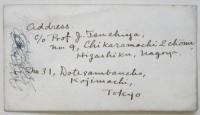 Address
c/o Prof. J. Tsuchiya,
no 9, Chikaramachi 2 chome,
Higashiku, Nagoya.
no 31, Dotesambancho,
Kojimachi,
Tokyo.